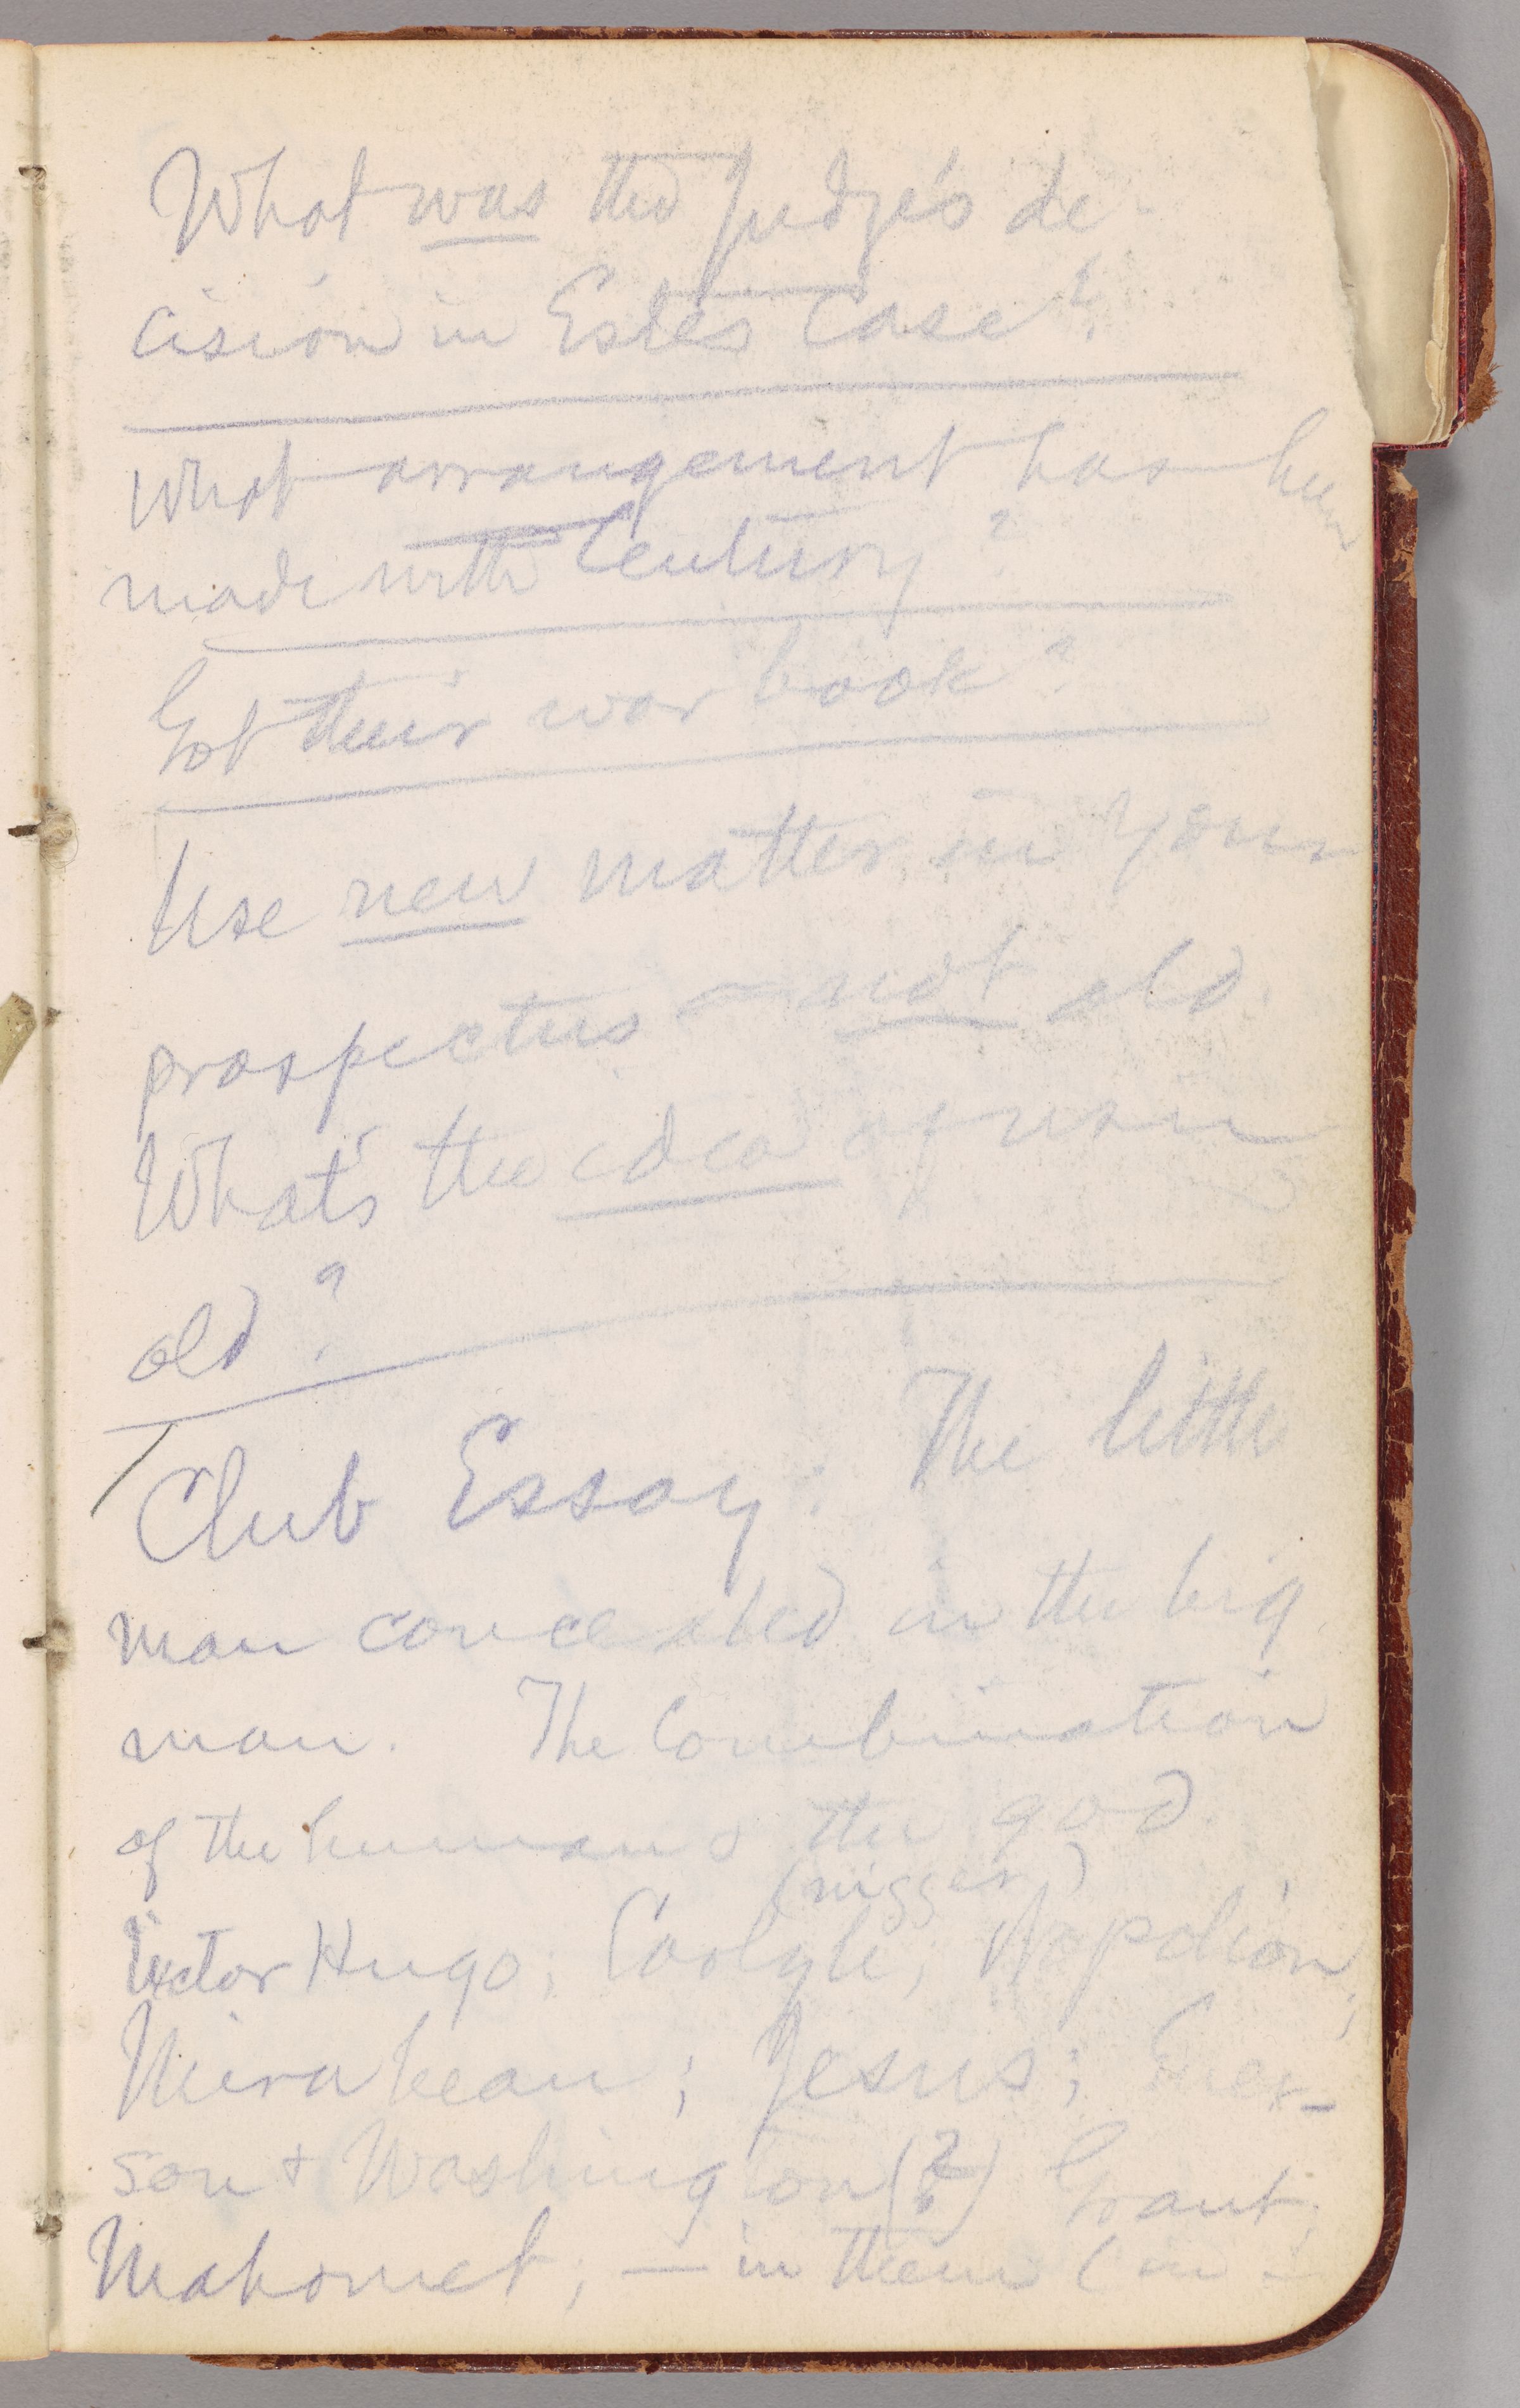 What was the Judge's de-
cision in Estes Case?
What arrangement has been
made with Century?
Got their war book?
Use new matter in your
prospectus — not old.
What's the idea of using
old?
Club Essay: The little
man concealed in the big
man. The Combination
of the human & the god.
(nigger)
Victor Hugo; Carlyle; Napoleon;
Mirabeau; Jesus; Emer-
son & Washington(?) Grant;
Mahomet; — in them (in